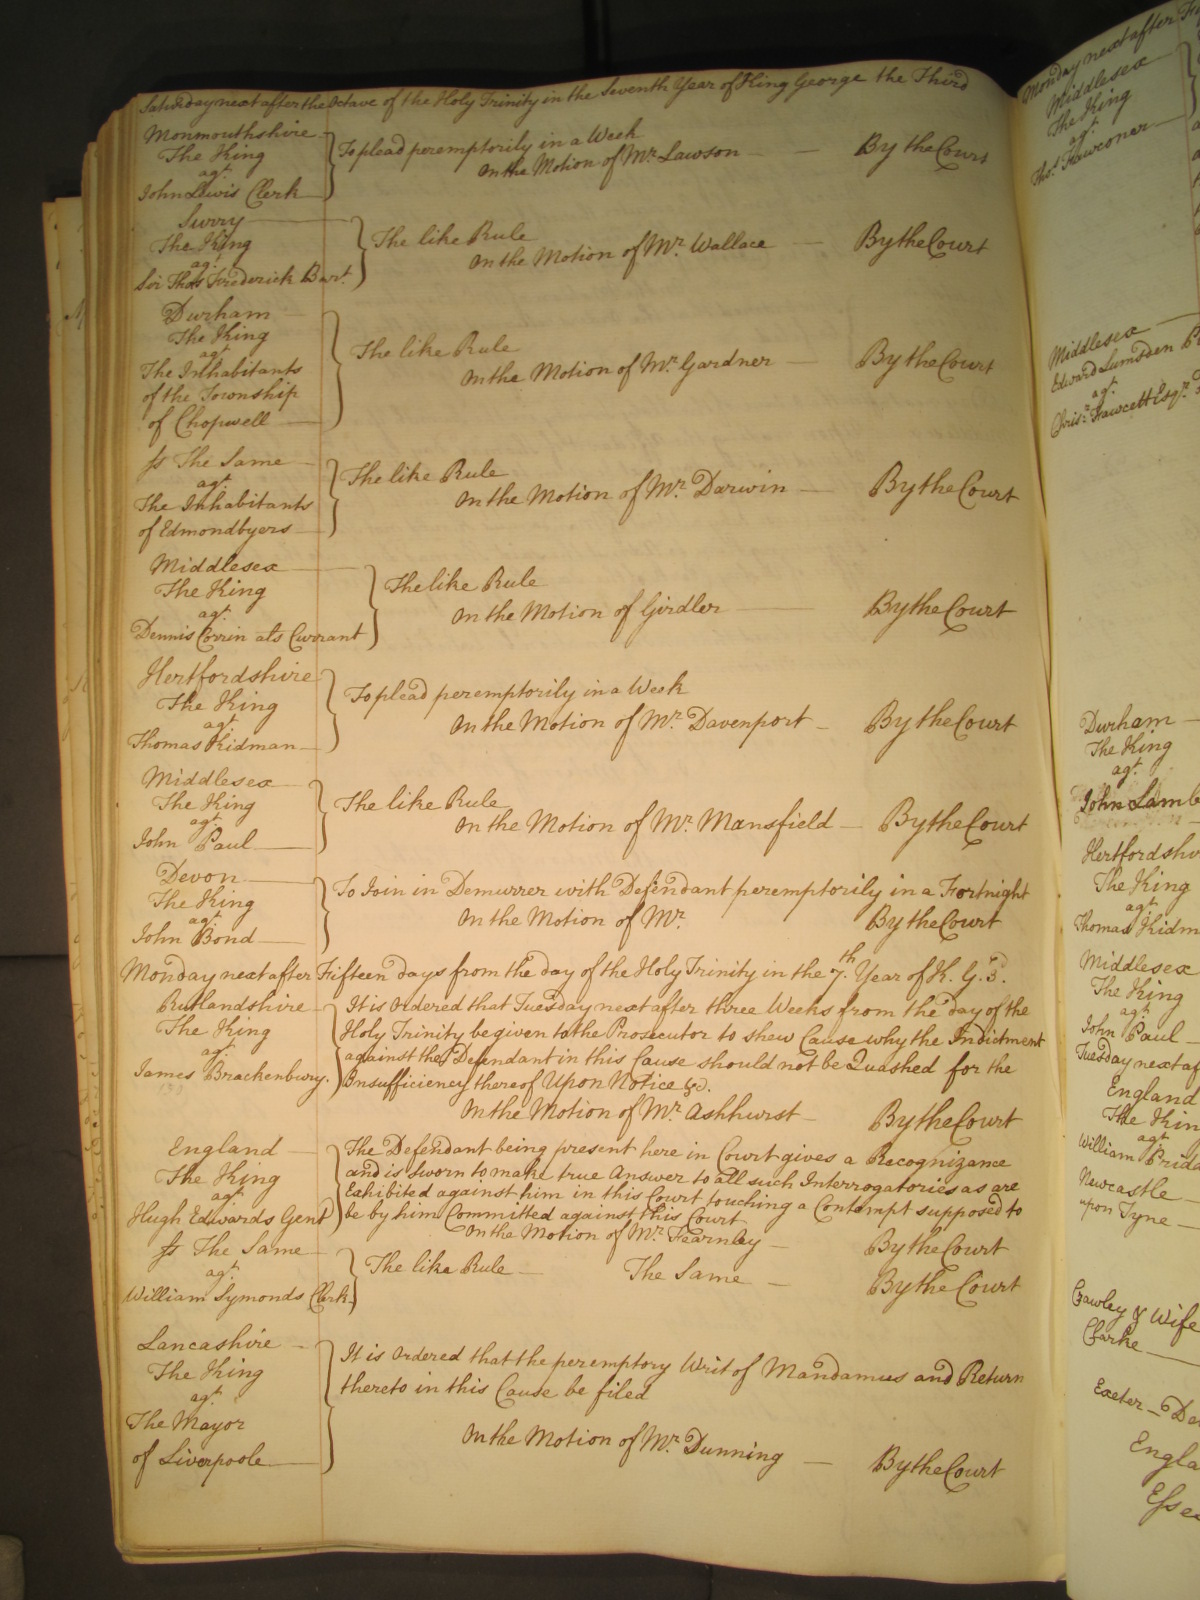 Saturday next after the Octave of the Holy Trinity in the Seventh Year of King George the Third
Monmouthshire
The King
agt.
John Lewis Clerk
To plead peremptorily in a Week
On the Motion of Mr. Lawson
By the Court
Surry
The King
agt.
Sir Thos. Frederick Bart.
The like Rule
On the Motion of Mr. Wallace
By the Court
Durham
The King
agt.
The Inhabitants
of the Township
of Chopwell
The like Rule
On the Motion of Mr. Gardner
By the Court
Ss The Same
agt.
The Inhabitants
of Edmondbyers
The like Rule
On the Motion of Mr. Darwin
By the Court
Middlesex
The King
agt.
Dennis Corrin als Currant
The like Rule
On the Motion of Girdler
By the Court
Hertfordshire
The King
agt.
Thomas Kidman
To plead peremptorily in a Week
On the Motion of Mr. Davenport
By the Court
Middlesex
The King
agt.
John Paul
The like Rule
On the Motion of Mr. Mansfield
By the Court
Devon
The King
agt.
John Bond
To Join in Demurrer with Defendant peremptorily in a Fortnight
On the Motion of Mr.
By the Court
Monday next after Fifteen days from the day of the Holy Trinity in the 7th. Year of K. G. 3d.
Rutlandshire
The King
agt.
James Brackenbury.
It is Ordered that Tuesday next after three Weeks from the day of the
Holy Trinity be given to the Prosecutor to shew Cause why the Indictment
against the Defendant in this Cause should not be Quashed for the
Insufficiency thereof Upon Notice &c.
On the Motion of Mr. Ashhurst
By the Court
England
The King
agt.
Hugh Edwards Gent
The Defendant being present here in Court gives a Recognizance
and is Sworn to make true Answer to all such Interrogatories as are
Exhibited against him in this Court touching a Contempt supposed to
be by him Committed against this Court
On the Motion of Mr. Fearnley
By the Court
Ss The Same
agt.
William Symonds Clerk
The like Rule
The Same
By the Court
Lancashire
The King
agt.
The Mayor
of Liverpoole
It is Ordered that the peremptory Writ of Mandamus and Return
thereto in this Cause be filed
On the Motion of Mr. Dunning
By the Court
Monday next after
Middlesex
The King
agt.
Thos. Fawconer
Middlesex
Edward Lumsden
agt.
Chrisr. Fawcett Esqr.
Durham
The King
agt.
John Lamb
Hertfordshi
The King
agt.
Thomas Kidm
Middlesex
The King
agt.
John Paul
Tuesday next af
England
The Kin
agt.
William Prid
Newcastle
upon Tyne
Crawley & Wife
Clarke
Exeter
Engla
Esse